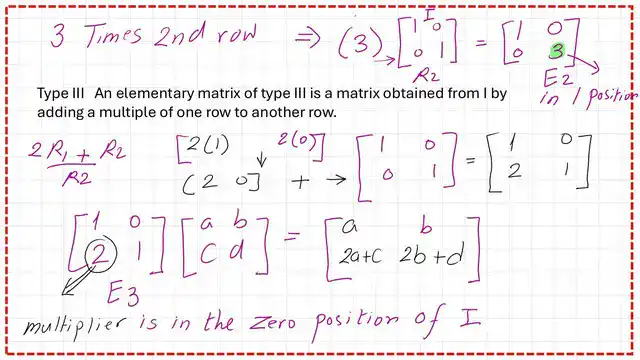 3 Times 2nd row ⇒ (3) → [1 0; 0 1] = [1 0; 0 3]
I
R2
E2
in 1 position
Type III An elementary matrix of type III is a matrix obtained from I by
adding a multiple of one row to another row.
2R1 + R2
R2
[2(1) 2(0)]
(2 0] + → [1 0; 0 1] = [1 0; 2 1]
[1 0; 2 1] [a b; c d] = [a b; 2a+c 2b+d]
E3
multiplier is in the zero position of I